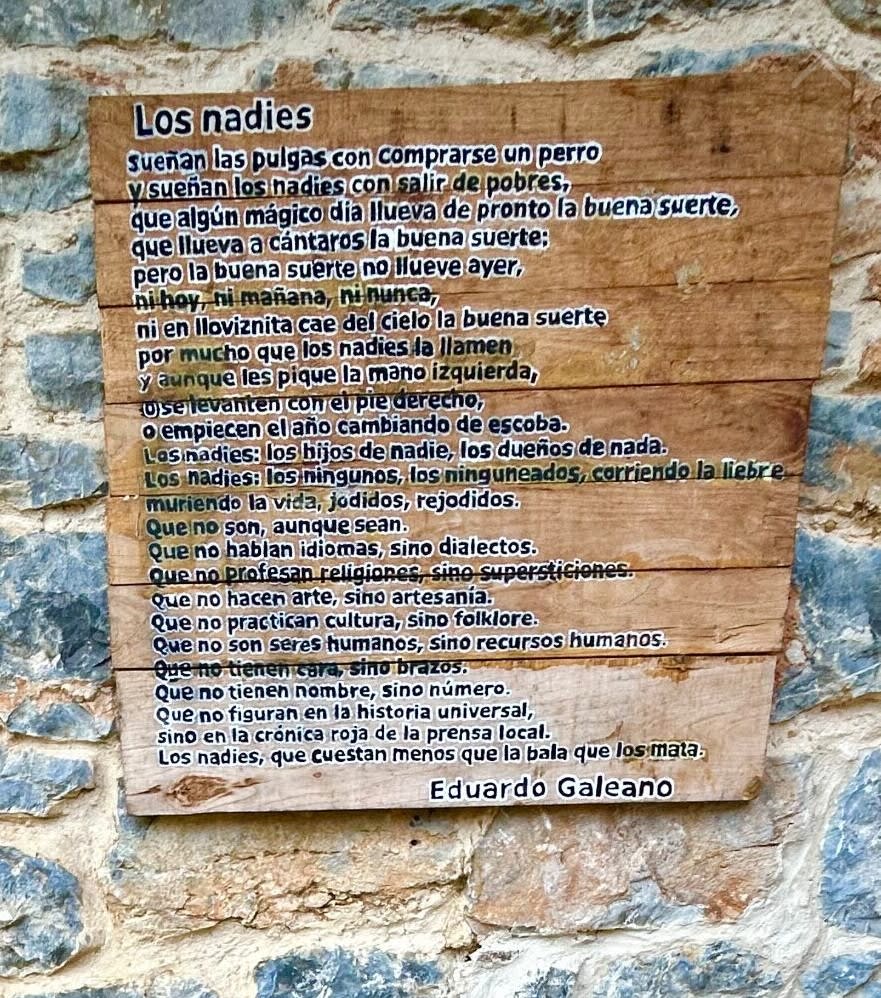 Los nadies
sueñan las pulgas con comprarse un perro
y sueñan los nadies con salir de pobres,
que algún mágico día llueva de pronto la buena suerte,
que llueva a cántaros la buena suerte;
pero la buena suerte no llueve ayer,
ni hoy, ni mañana, ni nunca,
ni en lloviznita cae del cielo la buena suerte
por mucho que los nadies la llamen
y aunque les pique la mano izquierda,
o se levanten con el pie derecho,
o empiecen el año cambiando de escoba.
Los nadies: los hijos de nadie, los dueños de nada.
Los nadies: los ningunos, los ninguneados, corriendo la liebre
muriendo la vida, jodidos, rejodidos.
Que no son, aunque sean.
Que no hablan idiomas, sino dialectos.
Que no profesan religiones, sino supersticiones.
Que no hacen arte, sino artesanía.
Que no practican cultura, sino folklore.
Que no son seres humanos, sino recursos humanos.
Que no tienen cara, sino brazos.
Que no tienen nombre, sino número.
Que no figuran en la historia universal,
sino en la crónica roja de la prensa local.
Los nadies, que cuestan menos que la bala que los mata.
Eduardo Galeano